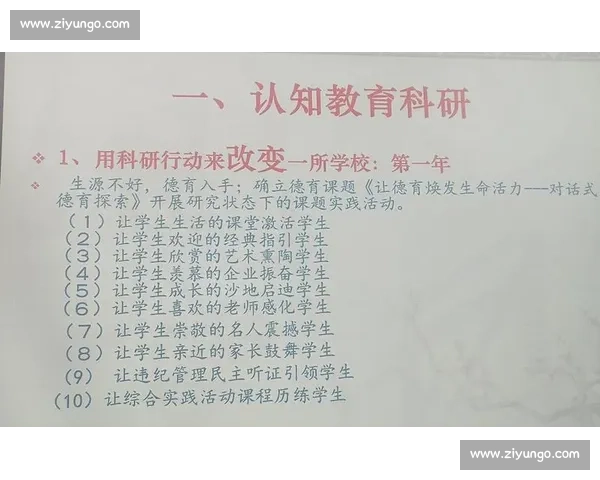 www.ziyungo.com
一、认知教育科研
❖ 1、用科研行动来改变一所学校：第一年
❖ 生源不好，德育入手；确立德育课题《让德育焕发生命活力——对话式
德育探索》开展研究状态下的课题实践活动。
（1）让学生生活的课堂激活学生
（2）让学生欢迎的经典指引学生
（3）让学生欣赏的艺术熏陶学生
（4）让学生羡慕的企业振奋学生
（5）让学生成长的沙地启迪学生
（6）让学生喜欢的老师感化学生
（7）让学生崇敬的名人震撼学生
（8）让学生亲近的家长鼓舞学生
（9） 让违纪管理民主听证引领学生
（10）让综合实践活动课程历练学生
www.ziyungo.com